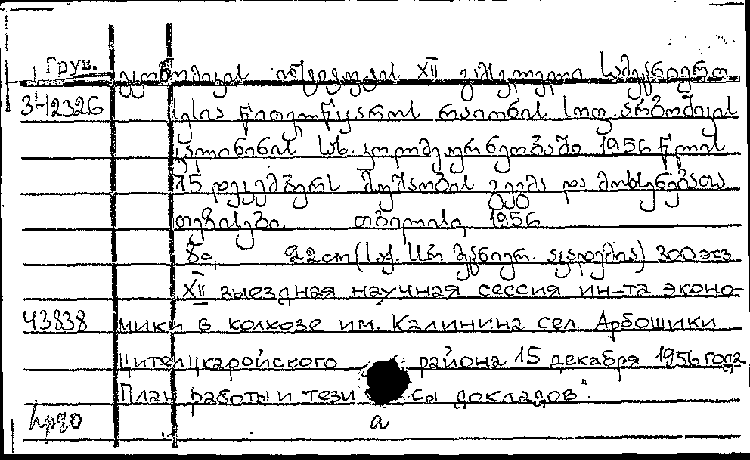 Груз.
ეკონომიკის ინსტიტუტის XII გამსვლელი სამეცნიერო
342326 სესია წითელწყაროს რაიონის სოფ. არბოშიკის
კალინინის სახ. კოლმეურნეობაში 1956 წლის
15 დეკემბერს მუშაობის გეგმა და მოხსენებათა
თეზისები. თბილისი, 1956
8с. 22 cm (საქ. სსრ მეცნიერ. აკადემია) 300 экз
XII выездная научная сессия ин-та эконо-
43838 мики в колхозе им. Калинина сел Арбошики
Цителцкаройского района 15 декабря 1956 года
План работы и тезисы докладов".
а